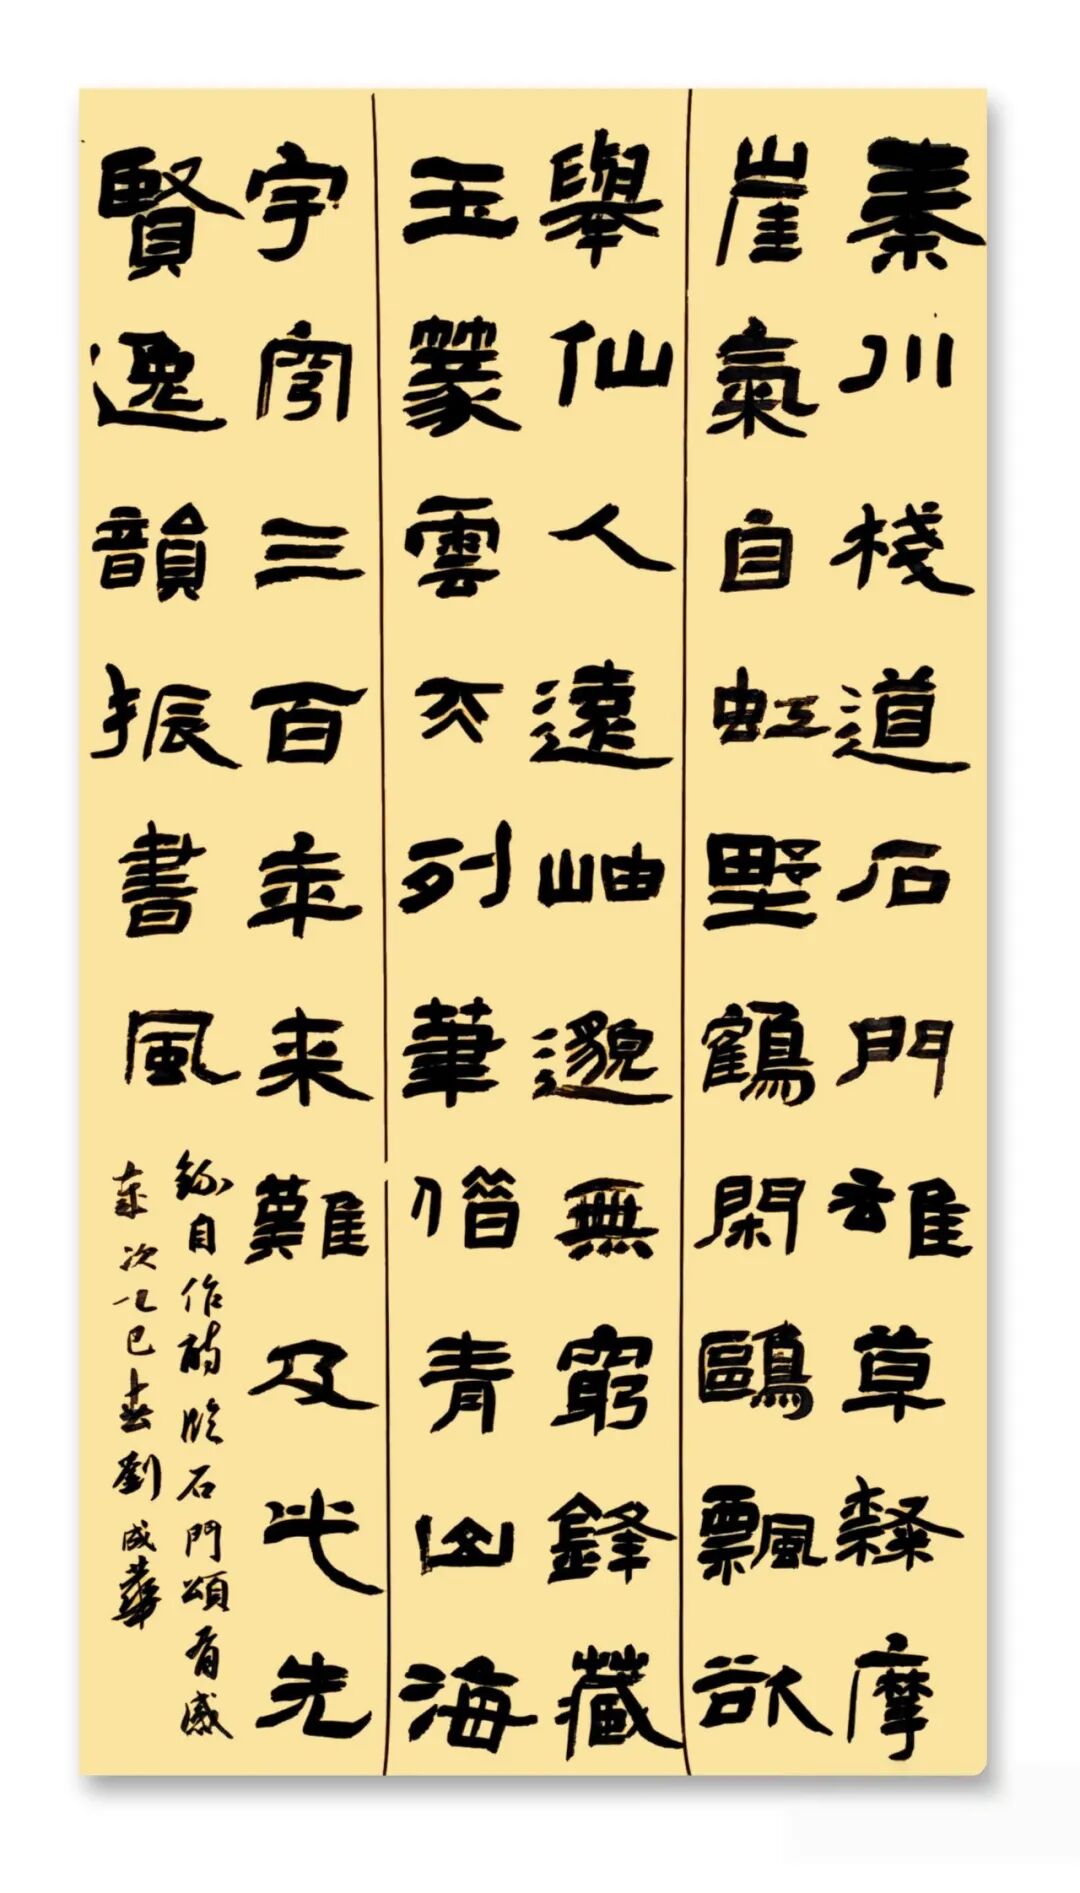 秦川棧道石門雄草隸摩
崖氣自虹野鶴閑鷗飄欲
舉仙人遠岫邈無窮鋒藏
玉篆雲天列筆借青山海
宇穹三百年来難及也先
賢逸韻振書風
錄自作詩臨石門頌有感
歲次乙巳春劉成華